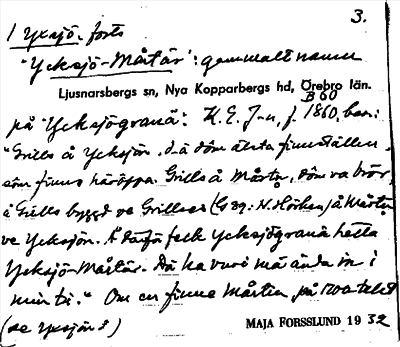 1 Yxsjö. forts 3.
"Ycksjö-Mårtär": gammalt namn
Ljusnarsbergs sn, Nya Kopparbergs hd, Örebro län.
B 60
på "Ycksjögranä". K. E. J-n, f. 1860, ber.:
"Grills å Ycksjön, d.ä döm älsta finnställen
söm finns häröppa. Grills å Mårtn, döm va brör,
å Grills byggd ve Grillsen (G 29: N. Hörken) å Mårtn
ve Ycksjön. Å darfä felk Ycksjögranä hetta
Ycksjö-Mårtär. Dä ha vuri mä ända in i
min ti." Om en finne Mårten, på 1700 talet
(se Yxsjön 8)
MAJA FORSSLUND 19 32